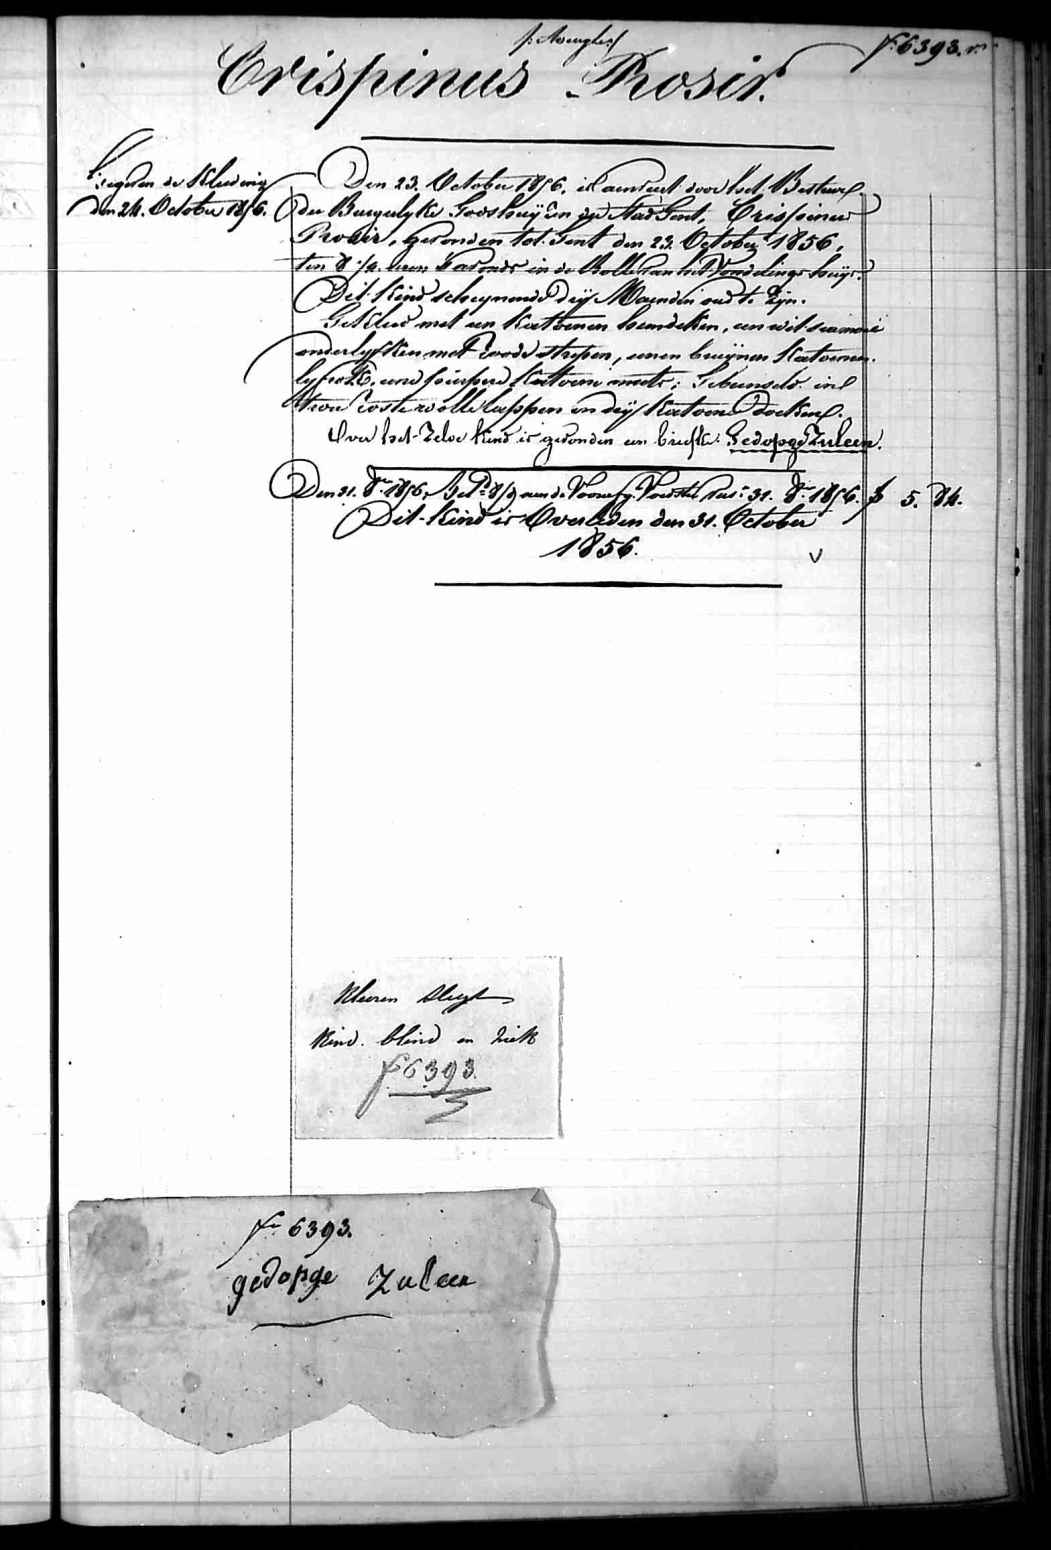 f° 6393. r°
Crispinus Rosir.
Gegeven de Kleeding
den 24. October 1856.
Den 23. October 1856. is aenveert door het Bestuer
der Burgerlyke Godshuyzen der Stad Gent, Crispinus
Rosir, gevonden tot Gent den 23. October 1856,
ten 8 1/2 uren s'avonds in de Rolle van het Vondelingshuys.
Dit Kind scheynende dry Maenden oud te zyn.
Gekleed met een Katoenen hemdeken, een wit
onderlyfken met roode strepen, eenen bruynen Katoenen
lyfrok, eene Katoene muts; Gebunseld in
twee rosse wolle lappen en dry Katoene doeken.
Over het zelve Kind is gevonden een briefke: Gedopge Zuleen.
Den 31. 8bre 1856. aen de 31. 8bre 1856. f 5. 84.
Dit Kind is Overleden den 31. October
1856.
V
Kleeren slegt
Kind blind en ziek
f° 6393.
f° 6393.
gedopge Zuleen